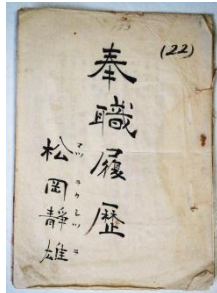 (22)
奉職履歴
松岡靜雄